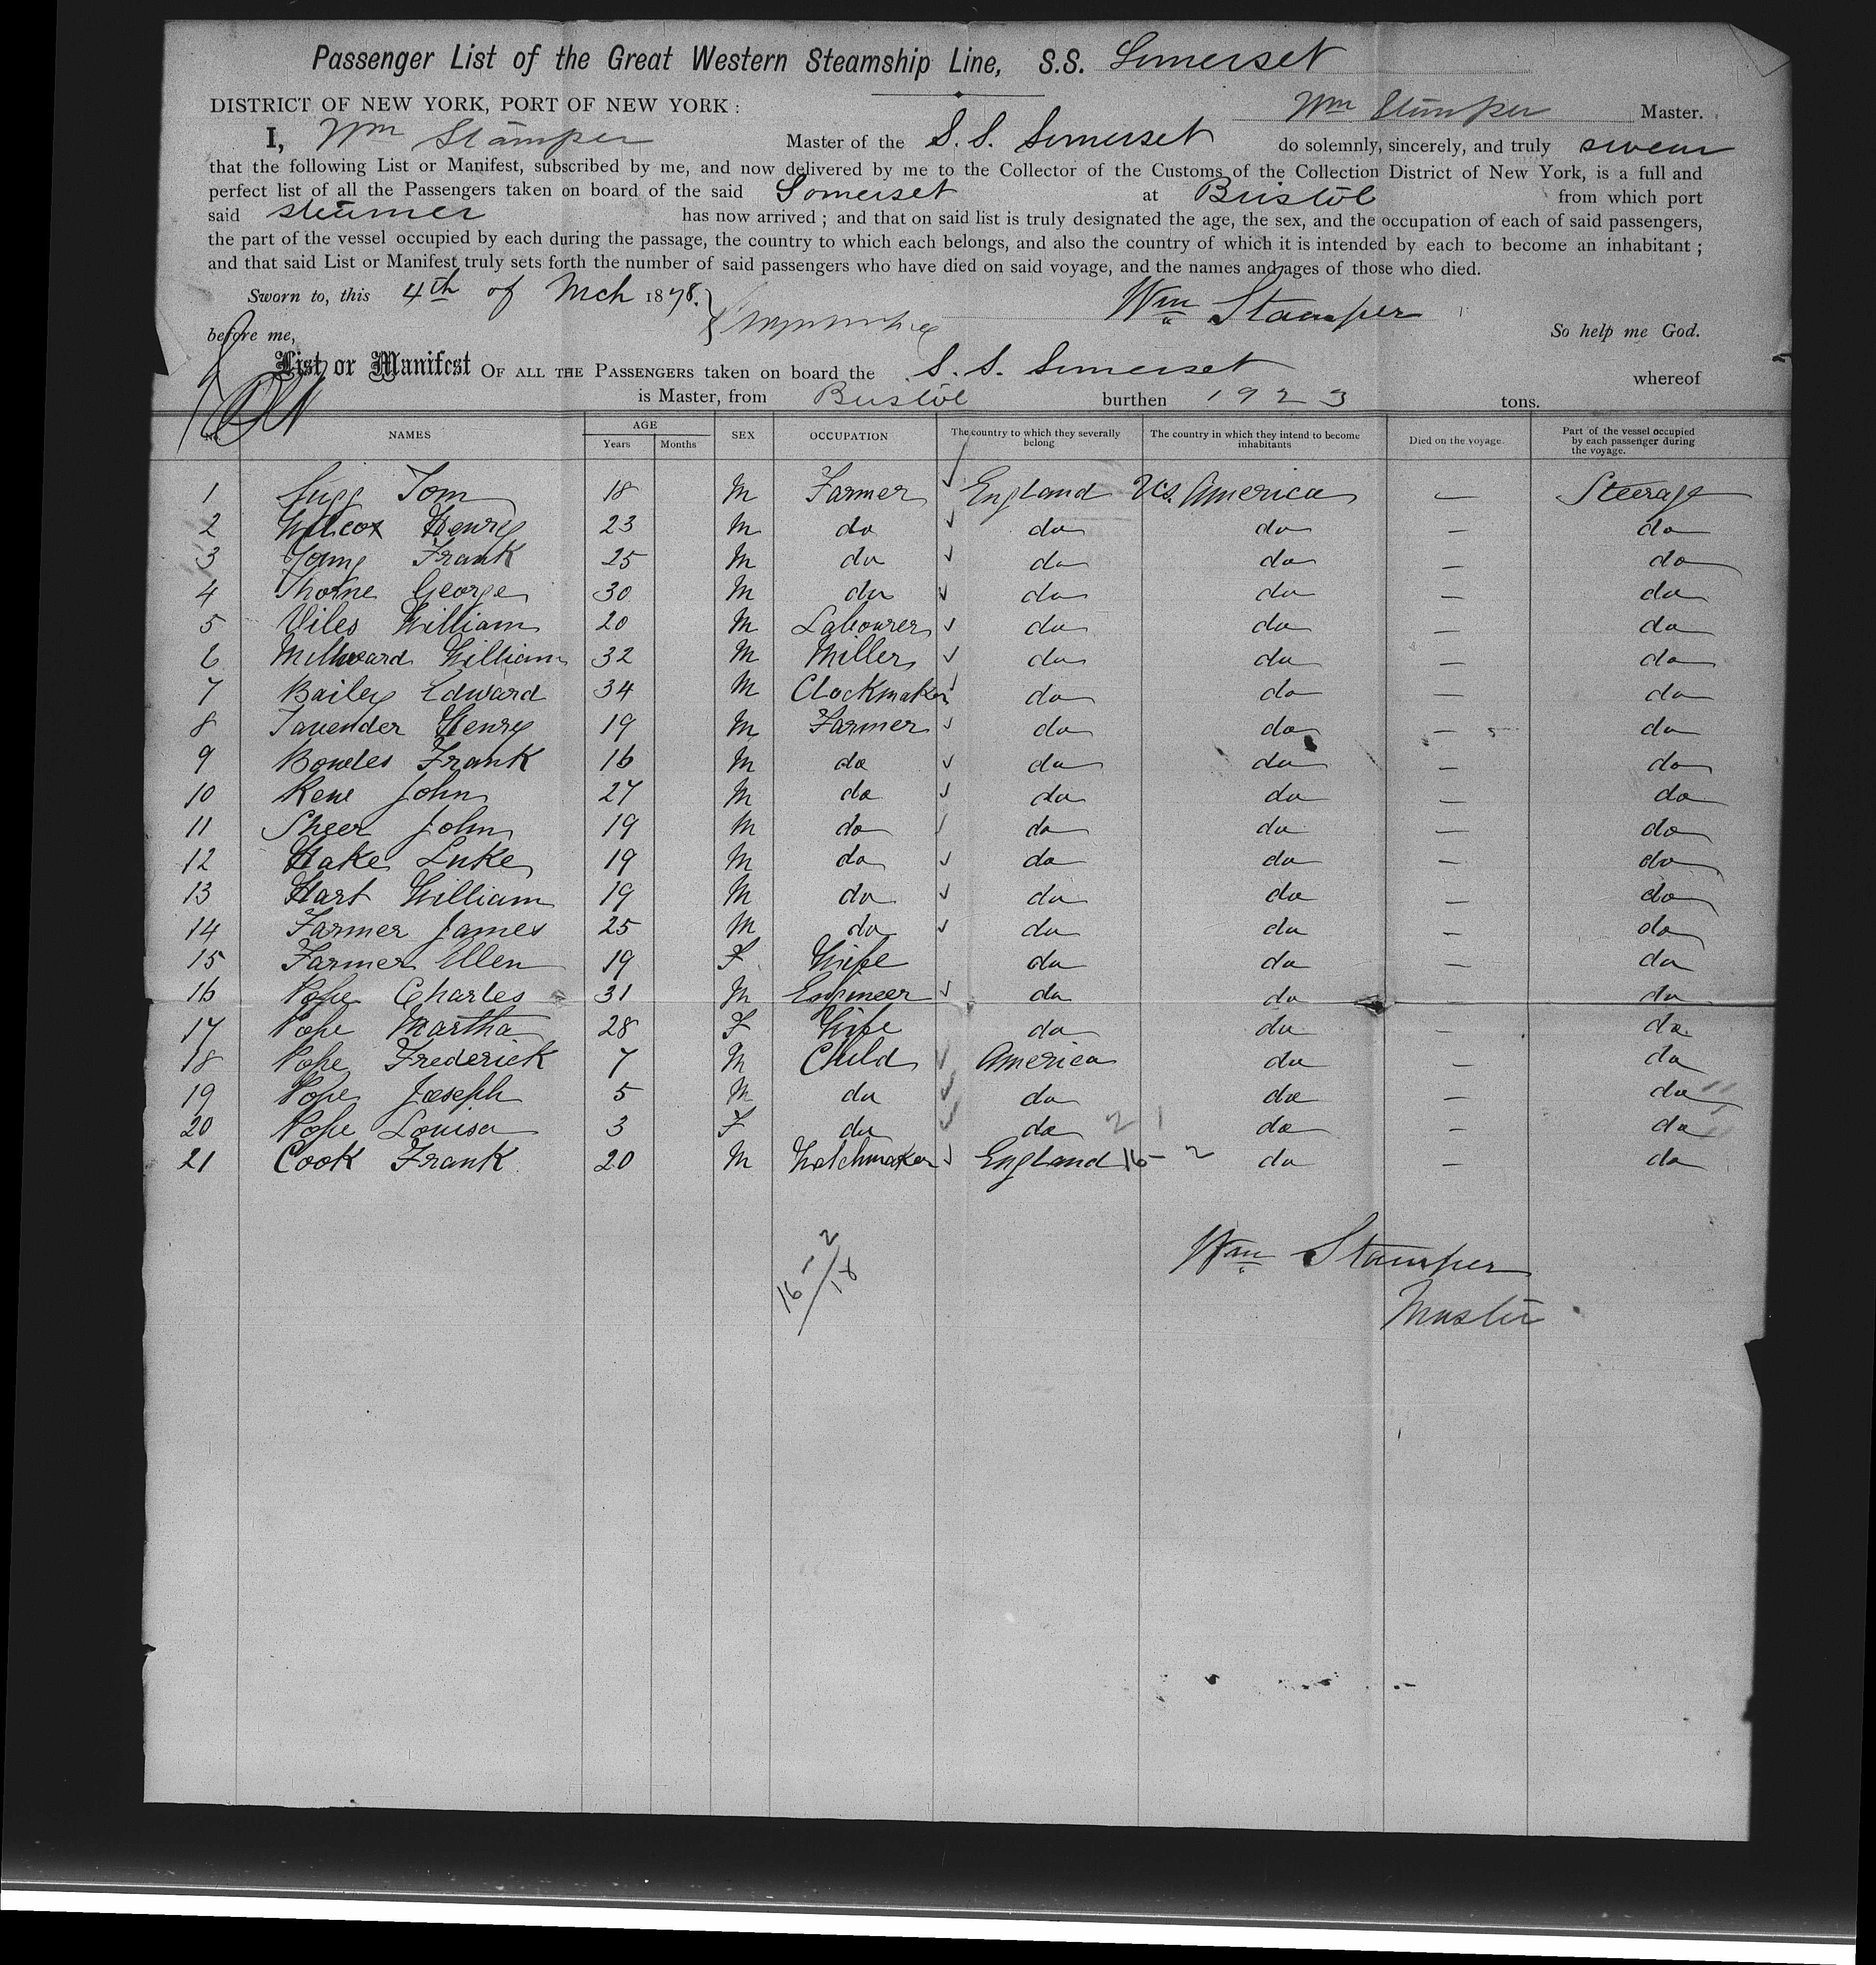 Passenger List of the Great Western Steamship Line, S.S. Somerset
DISTRICT OF NEW YORK, PORT OF NEW YORK : Wm Stamper Master.
I, Wm Stamper Master of the S.S. Somerset do solemnly, sincerely, and truly swear
that the following List or Manifest, subscribed by me, and now delivered by me to the Collector of the Customs of the Collection District of New York, is a full and
perfect list of all the Passengers taken on board of the said Somerset at Bristol from which port
said steamer has now arrived ; and that on said list is truly designated the age, the sex, and the occupation of each of said passengers,
the part of the vessel occupied by each during the passage, the country to which each belongs, and also the country of which it is intended by each to become an inhabitant ;
and that said List or Manifest truly sets forth the number of said passengers who have died on said voyage, and the names and ages of those who died.
Sworn to, this 4th of Mch 1878. Wm Stamper
before me, So help me God.
List or Manifest OF ALL THE PASSENGERS taken on board the S.S. Somerset whereof
is Master, from Bristol burthen 1923 tons.
No. NAMES AGE Years Months SEX OCCUPATION The country to which they severally belong The country in which they intend to become inhabitants Died on the voyage. Part of the vessel occupied by each passenger during the voyage.
1 Sugg Tom 18 M Farmer England U.S. America — Steerage
2 Wilcox Henry 23 M do do do — do
3 Young Frank 25 M do do do — do
4 Thorne George 30 M do do do — do
5 Viles William 20 M Labourer do do — do
6 Millward William 32 M Miller do do — do
7 Bailey Edward 34 M Clockmaker do do — do
8 Tavender Henry 19 M Farmer do do — do
9 Bowles Frank 16 M do do do — do
10 John 27 M do do do — do
11 Sheer John 19 M do do do — do
12 Hake Luke 19 M do do do — do
13 Hart William 19 M do do do — do
14 Farmer James 25 M do do do — do
15 Farmer Ellen 19 F Wife do do — do
16 Pope Charles 31 M Engineer do do — do
17 Pope Martha 28 F Wife do do — do
18 Pope Frederick 7 M Child America do — do
19 Pope Joseph 5 M do do do — do
20 Pope Louisa 3 F do do 2 1 do — do
21 Cook Frank 20 M Watchmaker England 16 - 2 do — do
16 - 2 / 18
Wm Stamper
Master